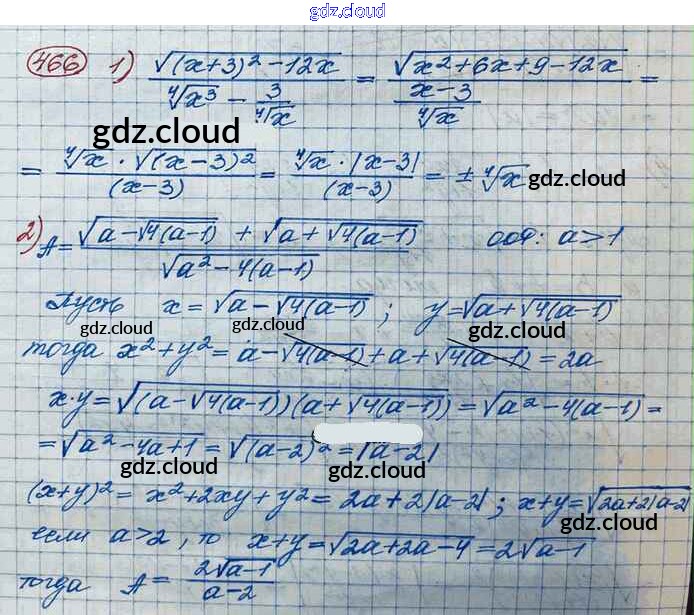 gdz.cloud
466 1) √((x+3)² − 12x) / (⁴√x³ − 3/⁴√x) = √(x² + 6x + 9 − 12x) / ((x−3)/⁴√x) =
gdz.cloud
= ⁴√x · √((x−3)²) / (x−3) = ⁴√x · |x−3| / (x−3) = ± ⁴√x gdz.cloud
2) A = (√(a − √4(a−1)) + √(a + √4(a−1))) / √(a² − 4(a−1)) ООФ: a > 1
Пусть x = √(a − √4(a−1)) ; y = √(a + √4(a−1))
gdz.cloud gdz.cloud gdz.cloud
тогда x² + y² = a − √4(a−1) + a + √4(a−1) = 2a
x·y = √((a − √4(a−1))(a + √4(a−1))) = √(a² − 4(a−1)) =
= √(a² − 4a + 1) = √((a−2)²) = |a−2|
gdz.cloud gdz.cloud
(x+y)² = x² + 2xy + y² = 2a + 2|a−2| ; x+y = √(2a+2|a−2|)
gdz.cloud
если a > 2, то x+y = √(2a + 2a − 4) = 2√(a−1)
тогда A = 2√(a−1) / (a−2)
gdz.cloud